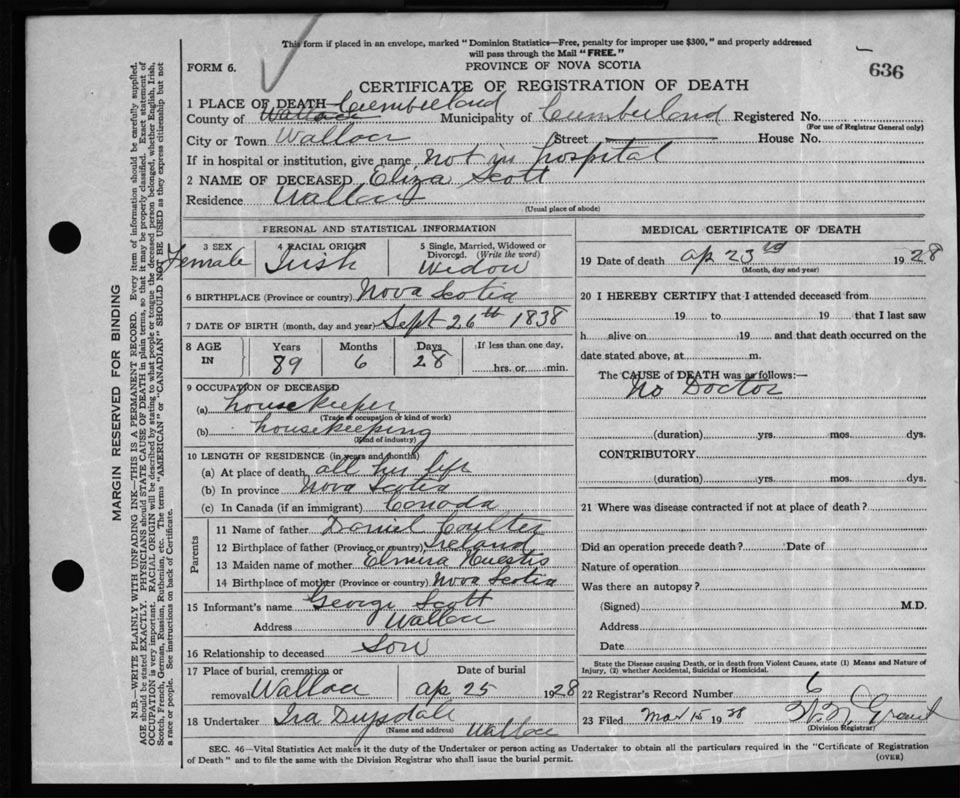 This form if placed in an envelope, marked "Dominion Statistics—Free, penalty for improper use $300," and properly addressed
will pass through the Mail "FREE."
FORM 6.
PROVINCE OF NOVA SCOTIA
636
CERTIFICATE OF REGISTRATION OF DEATH
1 PLACE OF DEATH— Cumberland
County of Wallace Municipality of Cumberland Registered No.
(For use of Registrar General only)
City or Town Wallace Street House No.
If in hospital or institution, give name Not in hospital
2 NAME OF DECEASED Eliza Scott
Residence Wallace
(Usual place of abode)
PERSONAL AND STATISTICAL INFORMATION
3 SEX 4 RACIAL ORIGIN 5 Single, Married, Widowed or
Divorced. (Write the word)
Female Irish Widow
6 BIRTHPLACE (Province or country) Nova Scotia
7 DATE OF BIRTH (month, day and year) Sept 26th 1838
8 AGE IN Years Months Days If less than one day,
89 6 28 hrs. or min.
9 OCCUPATION OF DECEASED
(a) housekeeper
(Trade or occupation or kind of work)
(b) housekeeping
(Kind of industry)
10 LENGTH OF RESIDENCE (in years and months)
(a) At place of death all her life
(b) In province Nova Scotia
(c) In Canada (if an immigrant) Canada
Parents
11 Name of father Daniel Coulter
12 Birthplace of father (Province or country) Ireland
13 Maiden name of mother Elmira
14 Birthplace of mother (Province or country) Nova Scotia
15 Informant's name George Scott
Address Wallace
16 Relationship to deceased Son
17 Place of burial, cremation or Date of burial
removal Wallace ap 25 1928
18 Undertaker Ira Drysdale
(Name and address) Wallace
MEDICAL CERTIFICATE OF DEATH
19 Date of death ap 23rd 1928
(Month, day and year)
20 I HEREBY CERTIFY that I attended deceased from
19 to 19 that I last saw
h alive on 19 and that death occurred on the
date stated above, at m.
The CAUSE of DEATH was as follows:—
No Doctor
(duration) yrs. mos. dys.
CONTRIBUTORY
(duration) yrs. mos. dys.
21 Where was disease contracted if not at place of death?
Did an operation precede death? Date of
Nature of operation
Was there an autopsy?
(Signed) M.D.
Address
Date
State the Disease causing Death, or in death from Violent Causes, state (1) Means and Nature of
Injury, (2) whether Accidental, Suicidal or Homicidal.
22 Registrar's Record Number 6
23 Filed 15 19 Grant
(Division Registrar)
SEC. 46—Vital Statistics Act makes it the duty of the Undertaker or person acting as Undertaker to obtain all the particulars required in the "Certificate of Registration
of Death" and to file the same with the Division Registrar who shall issue the burial permit.
(OVER)
MARGIN RESERVED FOR BINDING
N.B.—WRITE PLAINLY WITH UNFADING INK—THIS IS A PERMANENT RECORD. Every item of information should be carefully supplied.
AGE should be stated EXACTLY. PHYSICIANS should STATE CAUSE OF DEATH in plain terms, so that it may be properly classified. Exact statement of
OCCUPATION is very important. RACIAL ORIGIN will be described by stating to what people or tongue the deceased person belonged, whether English, Irish,
Scotch, French, German, Russian, Ruthenian, etc. The terms "AMERICAN" or "CANADIAN" SHOULD NOT BE USED as they express citizenship but not
a race or people. See instructions on back of Certificate.